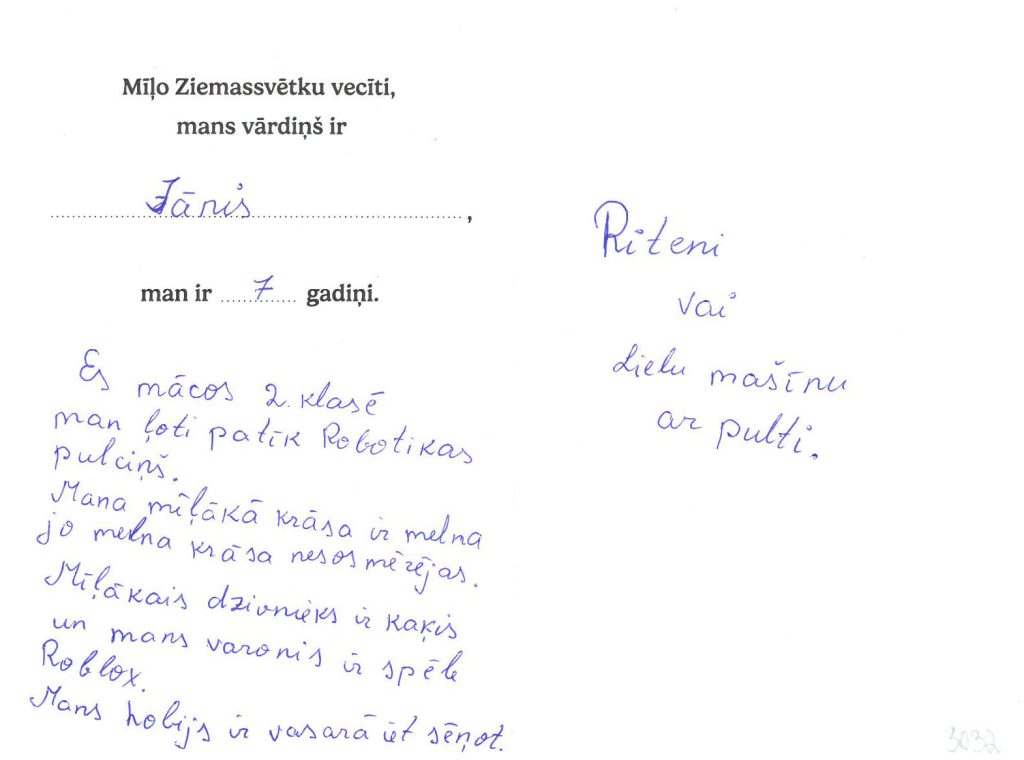 Mīļo Ziemassvētku vecīti,
mans vārdiņš ir
Jānis,
man ir 7 gadiņi.
Es mācos 2. klasē
man ļoti patīk Robotikas
pulciņš.
Mana mīļākā krāsa ir melna
jo melna krāsa nesosmērējas.
Mīļākais dzivnieks ir kaķis
un mans varonis ir spēle
Roblox.
Mans hobijs ir vasarā iet sēņot.
Riteni
vai
Lielu mašīnu
ar pulti.
3032